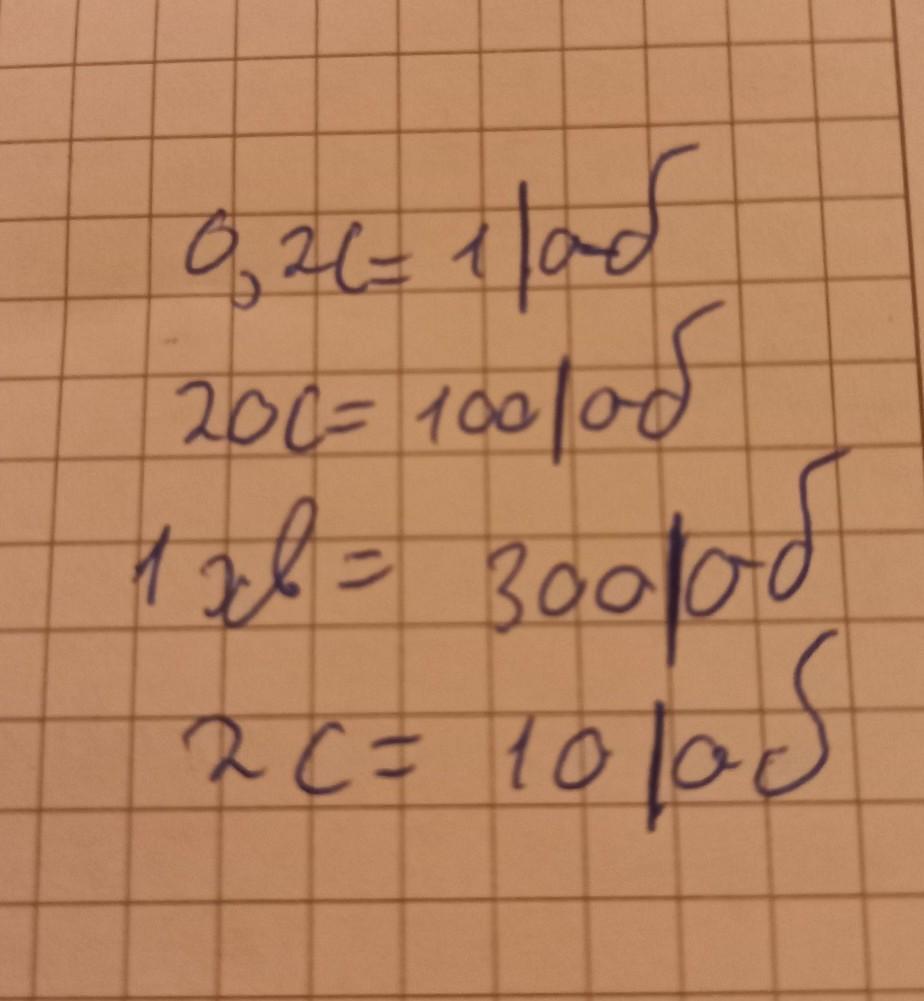 0,2с= 1|об
20с= 100|об
1 хв= 300|об
2 с= 10|об